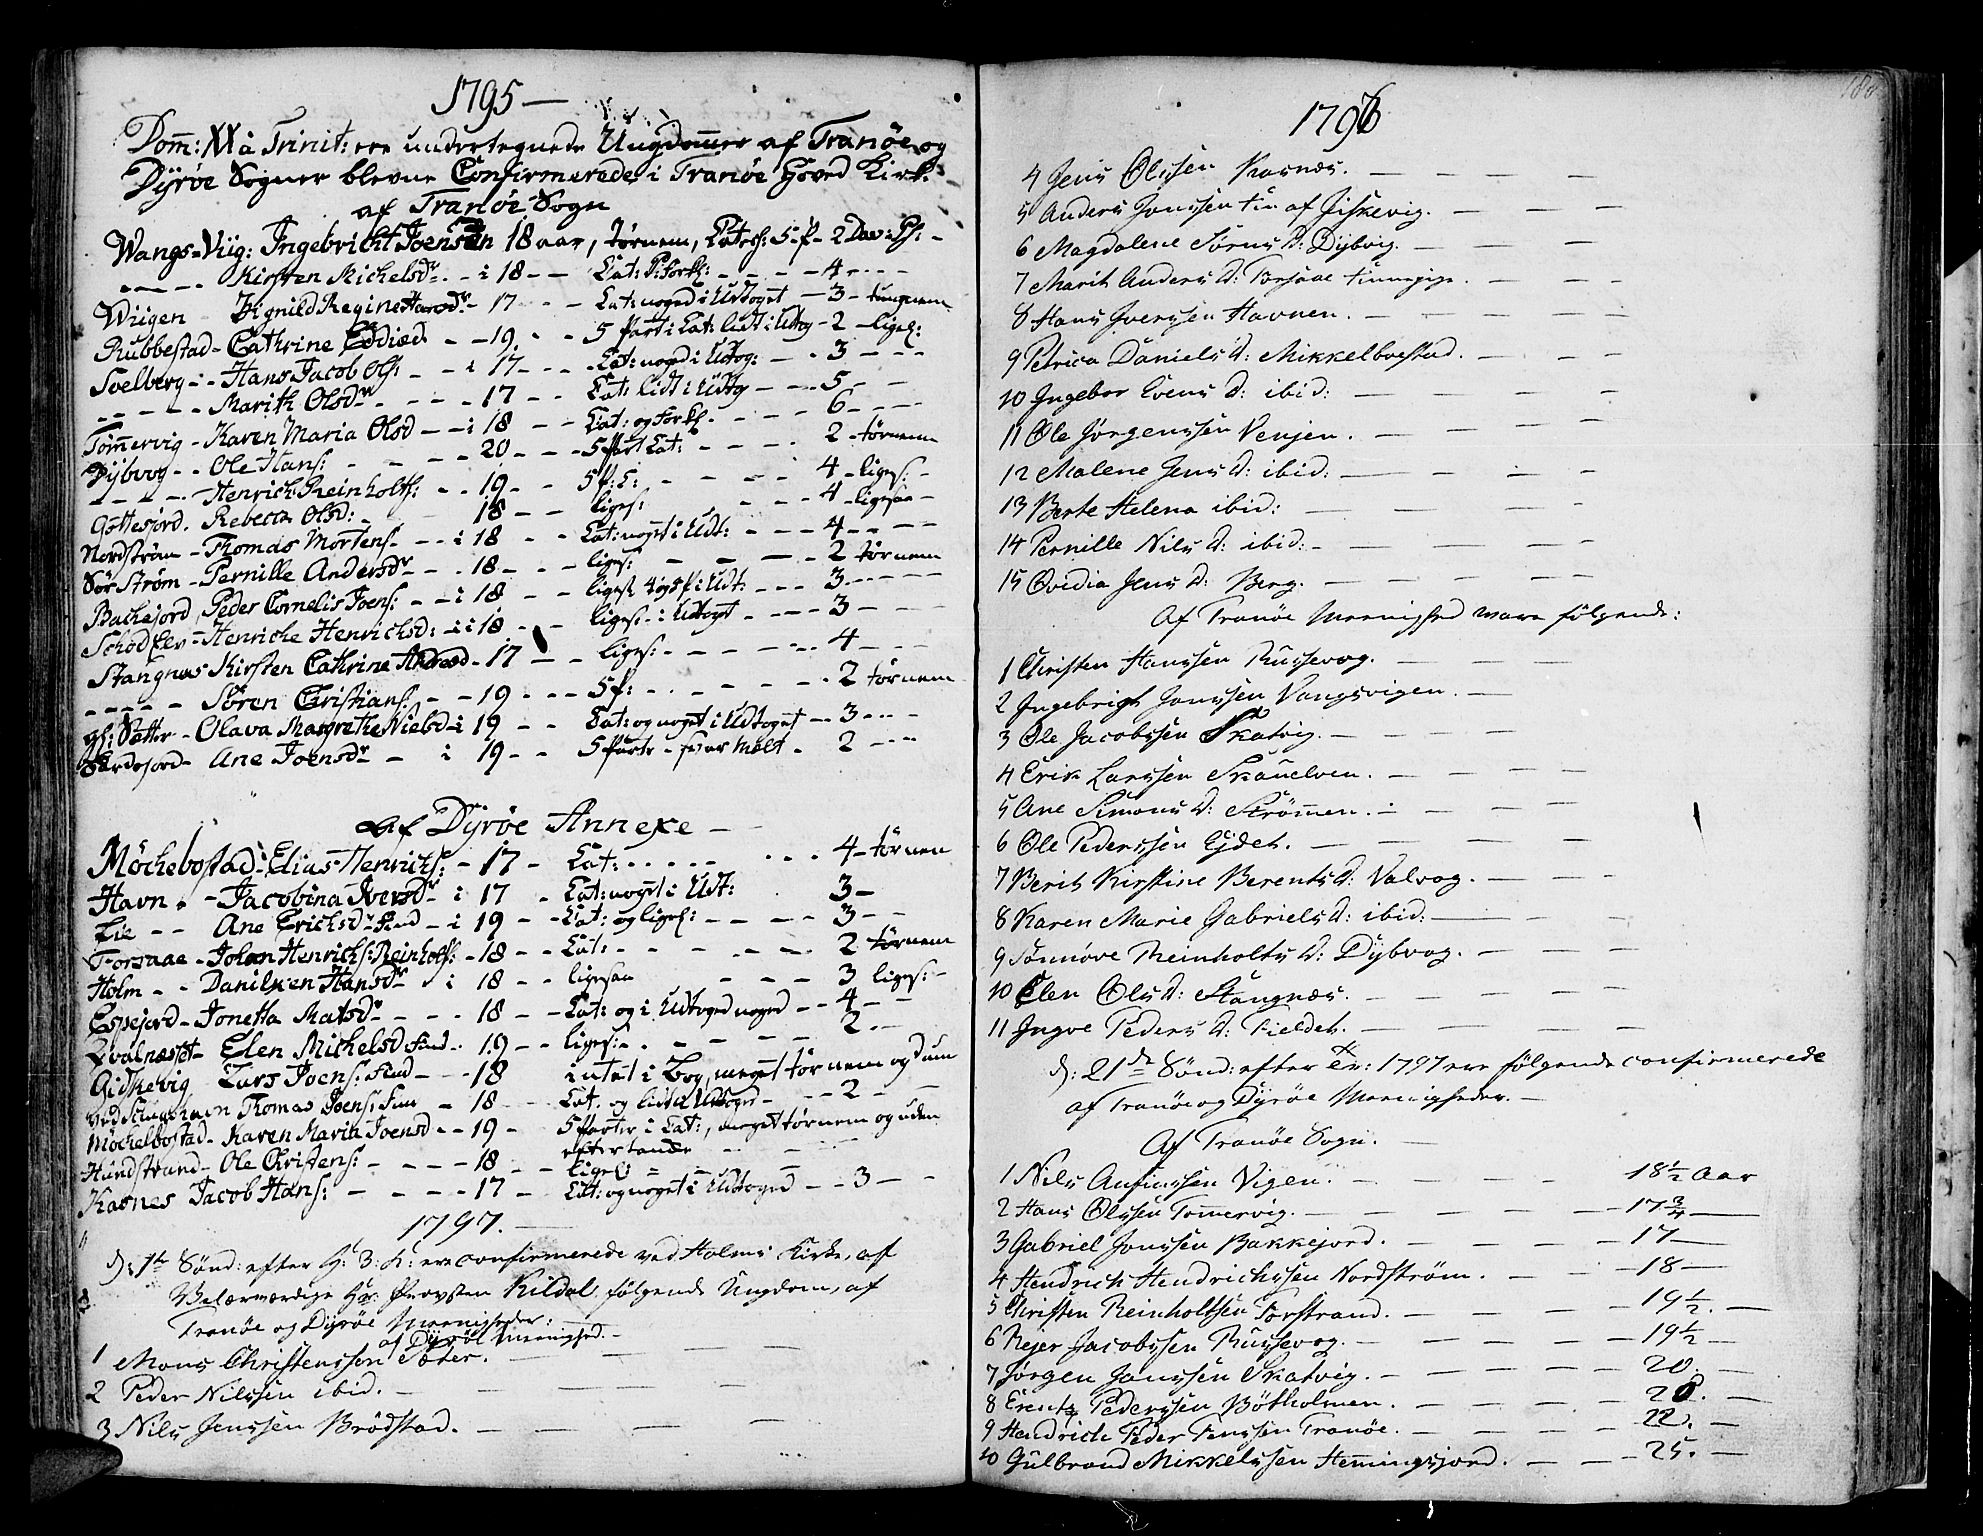 1795 —
Dom: XX à Trinit: ere undertegnede Ungdommer af Tranöe og
Dyröe Sogner blevne Confirmerede i Tranöe Hoved Kirk:
af Tranöe Sogn
Wangs-Viig: Ingebricht Joensen 18 aar, tørnem, Catech: 5 P- 2 Dav: Ps: -
- - - - Kirsten Michelsdr - i 18 - - Cat: P: Forkl: - - - - 4 - - - -
Wiigen - Zignild Regine Hansdr - 17 - - Cat: noged i Udtoget - 3 - tungnem
Rubbestad - Cathrine Eddiæd - - 19 - - 5 Part i Cat: lidt i Udtog - 2 - liges:
Soelberg - - Hans Jacob Ols: - - i 17 - - - Cat: noged i Udtog: - - 3 - - -
- - - - - Marith Olsdr - - - 17 - - Cat: lidt i Udtog - - - 5 - -
Tömmervig - Karen Maria Olsd - - i 18 - - Cat: og Forkl - - - - 6 - - - -
Dybvog - - Ole Hans: - - - 20 - - - 5 Part Cat: - - - - 2 - tørnem
- - - - - Henrich Reinholts: - - 19 - - 5 P: C: - - - - 4 - liges: -
Gottesjord. Rebecca Olsd: - 18 - - liges: - - - 4 - ligesaa -
Nordström - Thomas Mortens - - - i 18 - - Cat: noget i Udt: - - - 4 - - - -
Sør Strøm - Pernille Andersdr - - 18 - - liges: - - - - 2 tørnem
Backejord, Peder Cornelis Joens: - - i 18 - - liges 4 og 5 P: i Udt: - - - 3 - - - - -
Schod Elv - Henriche Henrichsd: - i 18 - - liges: - i Udtoget - - - - 3 - - -
Stangnæs Kirsten Cathrine Andread - 17 - - - liges: - - - - - 4 - - -
- - - - - Sören Christians: - - 19 - - - 5 P: - - - - - 2 tørnem
gl: Sætter - Olava Margrethe Nielsd - i 19 - - Cat: og noget i Udtoget - - 3 - - -
Ane Joensdr - i 19 - - 5 Parte - svar Mælt - 2 - - -
af Dyröe Annexe -
Möckebostad - Elias Henrichs: - 17 - Cat: - - - - - - - 4 - tørnem
Havn - - Jacobina Iversdr - i 17 - Cat: noget i Udt: 3 -
Lie - - Ane Erichsdr Find - i 19 - - Cat: og liges: - - - - 3 - -
Forsaae - Johan Henrichs: Reinholts: - 18 - - Cat: - - - - - 2 tørnem
Holm - - Danilken Hansdr - i 18 - - ligesaa - - - 3 liges: -
Espejord - Jonetta Matsdr - - - 18 - - Cat: og i Udtoged noged - - 4 - -
Qvalnæsset - Elen Michelsd Find - 19 - - liges: - - - - - 2 - -
Gidskevig Lars Joens: Find - - 18 intet i Bog, meget tørnem og dum
ved Thomas Joens: Fin - 18 Cat: og lidt i Udtoged - - - 2 - -
Möckelbostad - Karen Maria Joensd - - 19 - 5 Parter i Cat:, meget tørnem og uden
eftertancke
Hundstrand - Ole Christens: - - - - 18 - - liges - - - -
Kasnes Jacob Hans: - - - - 17 - Catt: og noget i Udtoged - - 3 - -
1797. -
D: 1te Sønd: efter H: 3. K: ere confirmerede ved Holms Kirke, af
Velærværdige Hr: Provsten Kildal, følgende Ungdom, af
Tranöe og Dyröe Meenigheder:
af Dyröe Meenighed. -
1 Mons Christenssøn Söter. -
2 Peder Nilssen ibid. -
3 Nils Jenssen Brödstad. -
1796
4 Jens Olssen Kasnæs. -
5 Anders Jonssen Fin af Jiskevig. -
6 Magdalene Sörens D: Dybvig. -
7 Marit Anders D: Forsaae Finnepige. -
8 Hans Iverssen Havnen. -
9 Petrica Daniels D: Mikkelboestad. -
10 Ingebor Evens D: ibid: -
11 Ole Jørgenssen Venjen. -
12 Malene Jens D: ibid: -
13 Berte Helena ibid: -
14 Pernille Nils D: ibid: -
15 Ovidia Jens D: Berg. -
Af Tranöe Meenighed ware følgende:
1 Christen Hanssen Russevog. -
2 Ingebrigt Jonssen Vangsvigen. -
3 Ole Jacobssen Skatvig. -
4 Erik Larssen Skauelven. -
5 Ane Simons D: Strömmen. -
6 Ole Pederssen Ejdet. -
7 Berit Kirstine Berents D: Valvog. -
8 Karen Marie Gabriels D: ibid: -
9 Sønnöve Reinholts D: Dybvog. -
10 Elen Ols D: Stangnæs. -
11 Ingve Peders D: Fieldet. -
D: 21de Sønd: efter Tr: 1797 ere følgende confirmerede
af Tranöe og Dyröe Meenigheder. -
Af Tranöe Sogn. -
1 Nils Anfinssen Vigen. - 18½ Aar
2 Hans Olssen Tømervig. - 17¾ -
3 Gabriel Jonssen Bakkejord. - 17 -
4 Hendrich Hendrichssen Nordström. - 18 -
5 Christen Reinholtsen Forstrand. - 19½. -
6 Rejer Jacobssen Russevog. - 19½ -
7 Jørgen Janssen Skatvig. - 20. -
8 Erentz Pederssen Bötholmen. - 20. -
9 Hendrich Peder Jenssen Tranöe. - 22. -
10 Gulbrand Mikkelssen Hemmingsjord. - 25. -